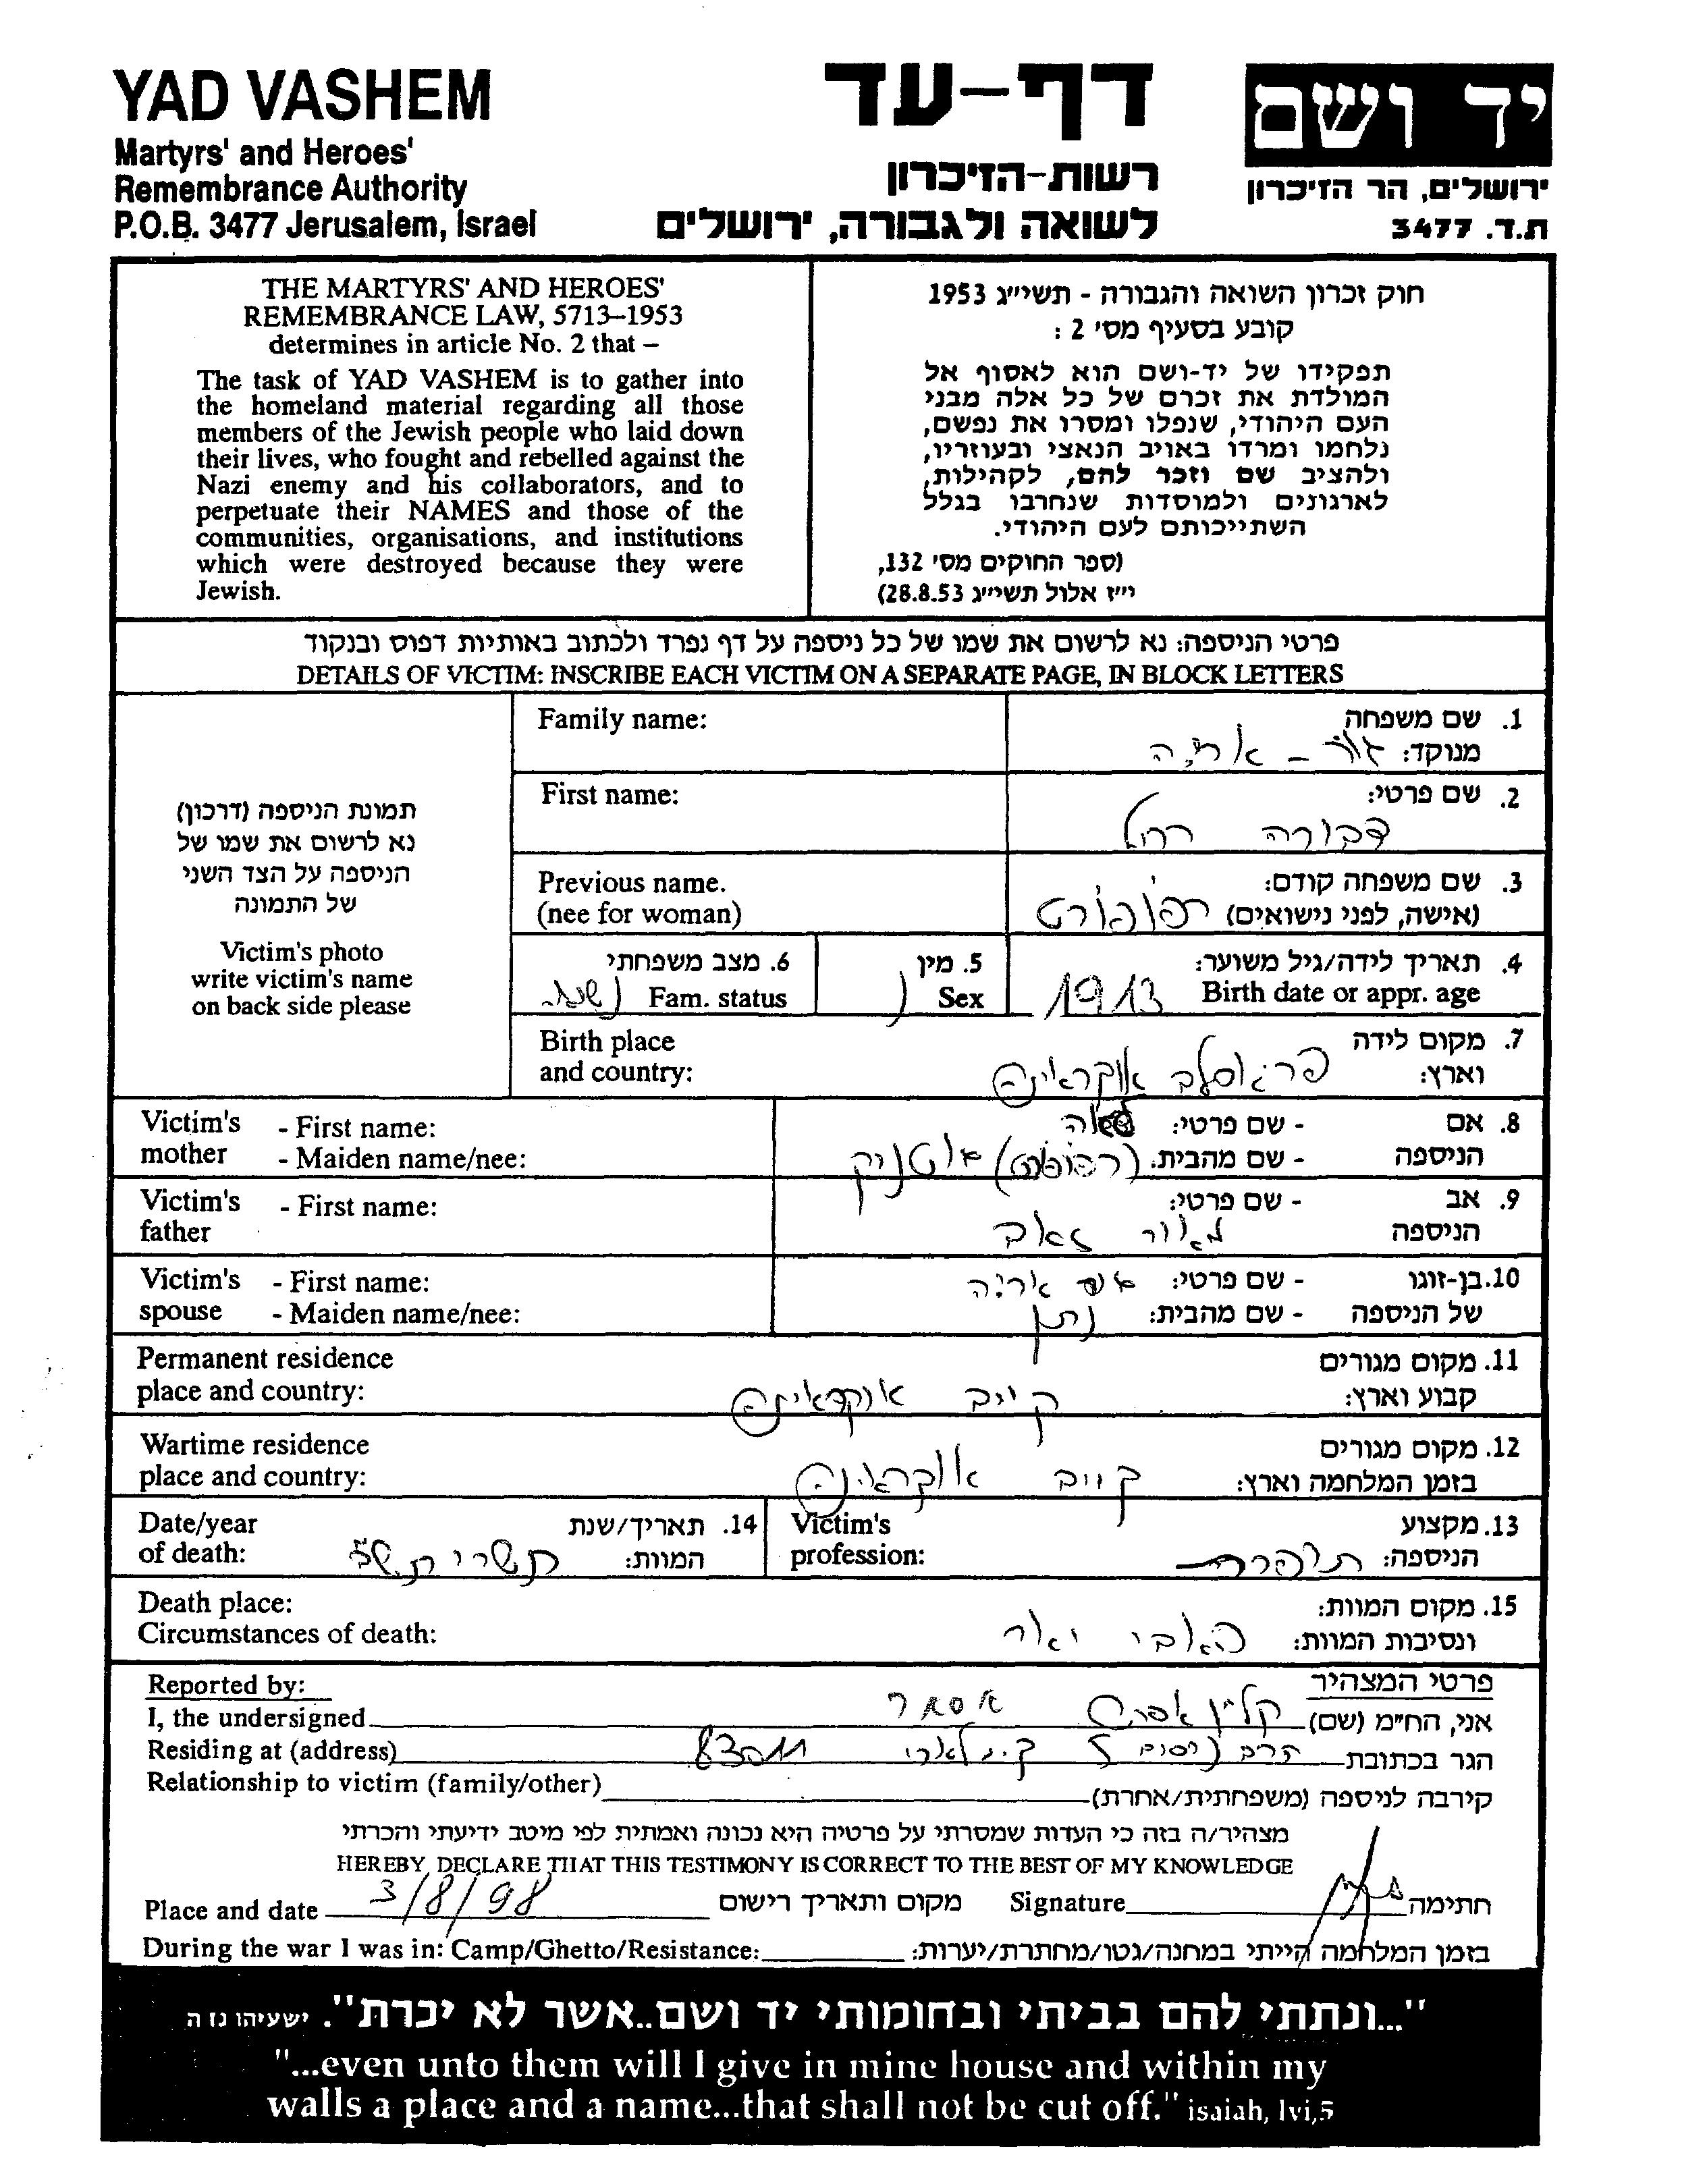 YAD VASHEM
Martyrs' and Heroes'
Remembrance Authority
P.O.B. 3477 Jerusalem, Israel
דף-עד
רשות-הזיכרון
לשואה ולגבורה, ירושלים
יד ושם
ירושלים, הר הזיכרון
ת.ד. 3477
THE MARTYRS' AND HEROES'
REMEMBRANCE LAW, 5713–1953
determines in article No. 2 that –
The task of YAD VASHEM is to gather into
the homeland material regarding all those
members of the Jewish people who laid down
their lives, who fought and rebelled against the
Nazi enemy and his collaborators, and to
perpetuate their NAMES and those of the
communities, organisations, and institutions
which were destroyed because they were
Jewish.
חוק זכרון השואה והגבורה - תשי"ג 1953
קובע בסעיף מס' 2 :
תפקידו של יד-ושם הוא לאסוף אל
המולדת את זכרם של כל אלה מבני
העם היהודי, שנפלו ומסרו את נפשם,
נלחמו ומרדו באויב הנאצי ובעוזריו,
ולהציב שם וזכר להם, לקהילות,
לארגונים ולמוסדות שנחרבו בגלל
השתייכותם לעם היהודי.
(ספר החוקים מס' 132,
י"ז אלול תשי"ג 28.8.53)
פרטי הניספה: נא לרשום את שמו של כל ניספה על דף נפרד ולכתוב באותיות דפוס ובנקוד
DETAILS OF VICTIM: INSCRIBE EACH VICTIM ON A SEPARATE PAGE, IN BLOCK LETTERS
תמונת הניספה (דרכון)
נא לרשום את שמו של
הניספה על הצד השני
של התמונה
Victim's photo
write victim's name
on back side please
Family name:
1. שם משפחה
מנוקד:
First name:
2. שם פרטי:
דבורה רחל
Previous name.
(nee for woman)
3. שם משפחה קודם:
(אישה, לפני נישואים) רפופורט
6. מצב משפחתי
Fam. status נשואה
5. מין
Sex נ
4. תאריך לידה/גיל משוער:
Birth date or appr. age 1913
Birth place
and country:
7. מקום לידה
וארץ: אוקראינה
Victim's mother
- First name:
- Maiden name/nee:
8. אם הניספה
- שם פרטי:
- שם מהבית:
Victim's father
- First name:
9. אב הניספה
- שם פרטי: זאב
Victim's spouse
- First name:
- Maiden name/nee:
10. בן-זוגו של הניספה
- שם פרטי: אריה
- שם מהבית: נתן
Permanent residence
place and country:
11. מקום מגורים
קבוע וארץ: קייב אוקראינה
Wartime residence
place and country:
12. מקום מגורים
בזמן המלחמה וארץ: קייב אוקראינה
Date/year
of death:
14. תאריך/שנת
המוות: תשרי
Victim's
profession:
13. מקצוע
הניספה: תופרת
Death place:
Circumstances of death:
15. מקום המוות:
ונסיבות המוות: באבי יאר
Reported by:
פרטי המצהיר
I, the undersigned
אני, הח"מ (שם) קליין אפרים אסתר
Residing at (address)
הגר בכתובת הרב ניסים 5 83011
Relationship to victim (family/other)
קירבה לניספה (משפחתית/אחרת)
מצהיר/ה בזה כי העדות שמסרתי על פרטיה היא נכונה ואמתית לפי מיטב ידיעתי והכרתי
HEREBY DECLARE THAT THIS TESTIMONY IS CORRECT TO THE BEST OF MY KNOWLEDGE
Place and date 3/8/98 מקום ותאריך רישום Signature חתימה
During the war I was in: Camp/Ghetto/Resistance: בזמן המלחמה הייתי במחנה/גטו/מחתרת/יערות:
"...ונתתי להם בביתי ובחומותי יד ושם..אשר לא יכרת". ישעיהו נו ה
"...even unto them will I give in mine house and within my
walls a place and a name...that shall not be cut off." isaiah, lvi,5